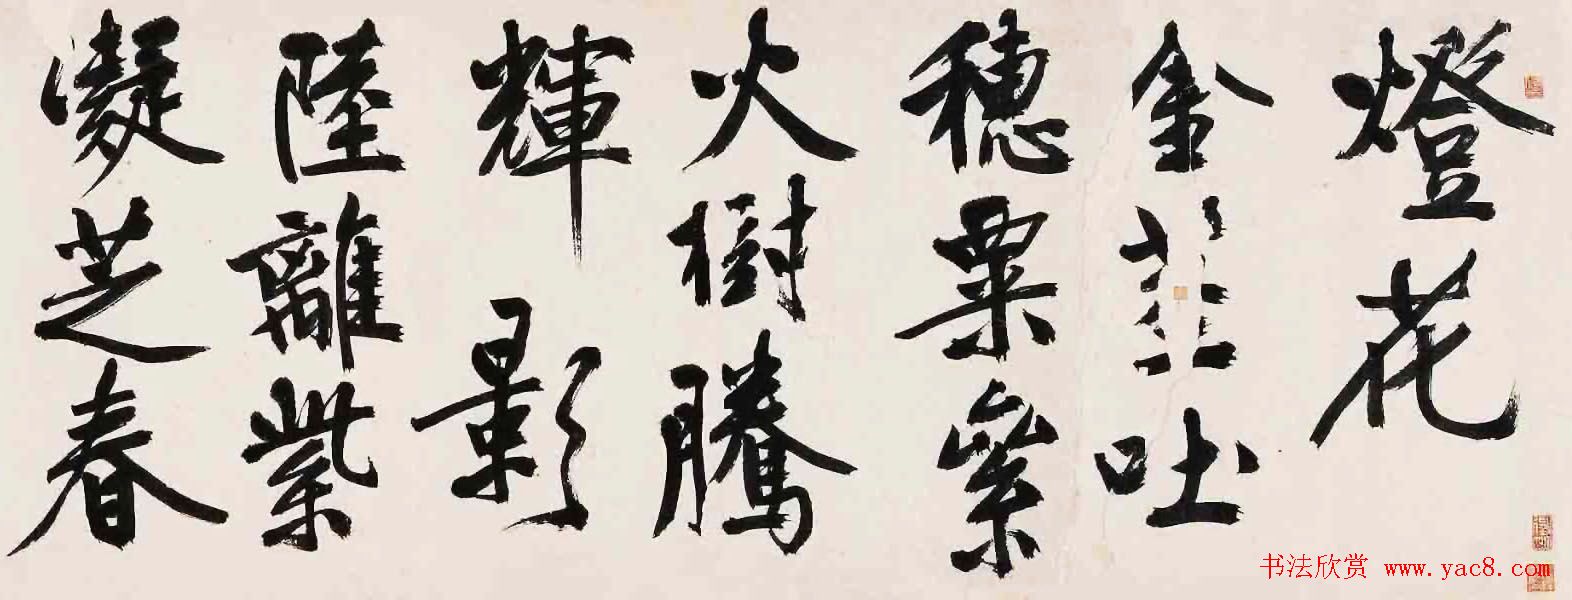 燈花
金吐
穗粟絫
火樹騰
輝影
陸離紫
凝芝春
书法欣赏 www.yac8.com